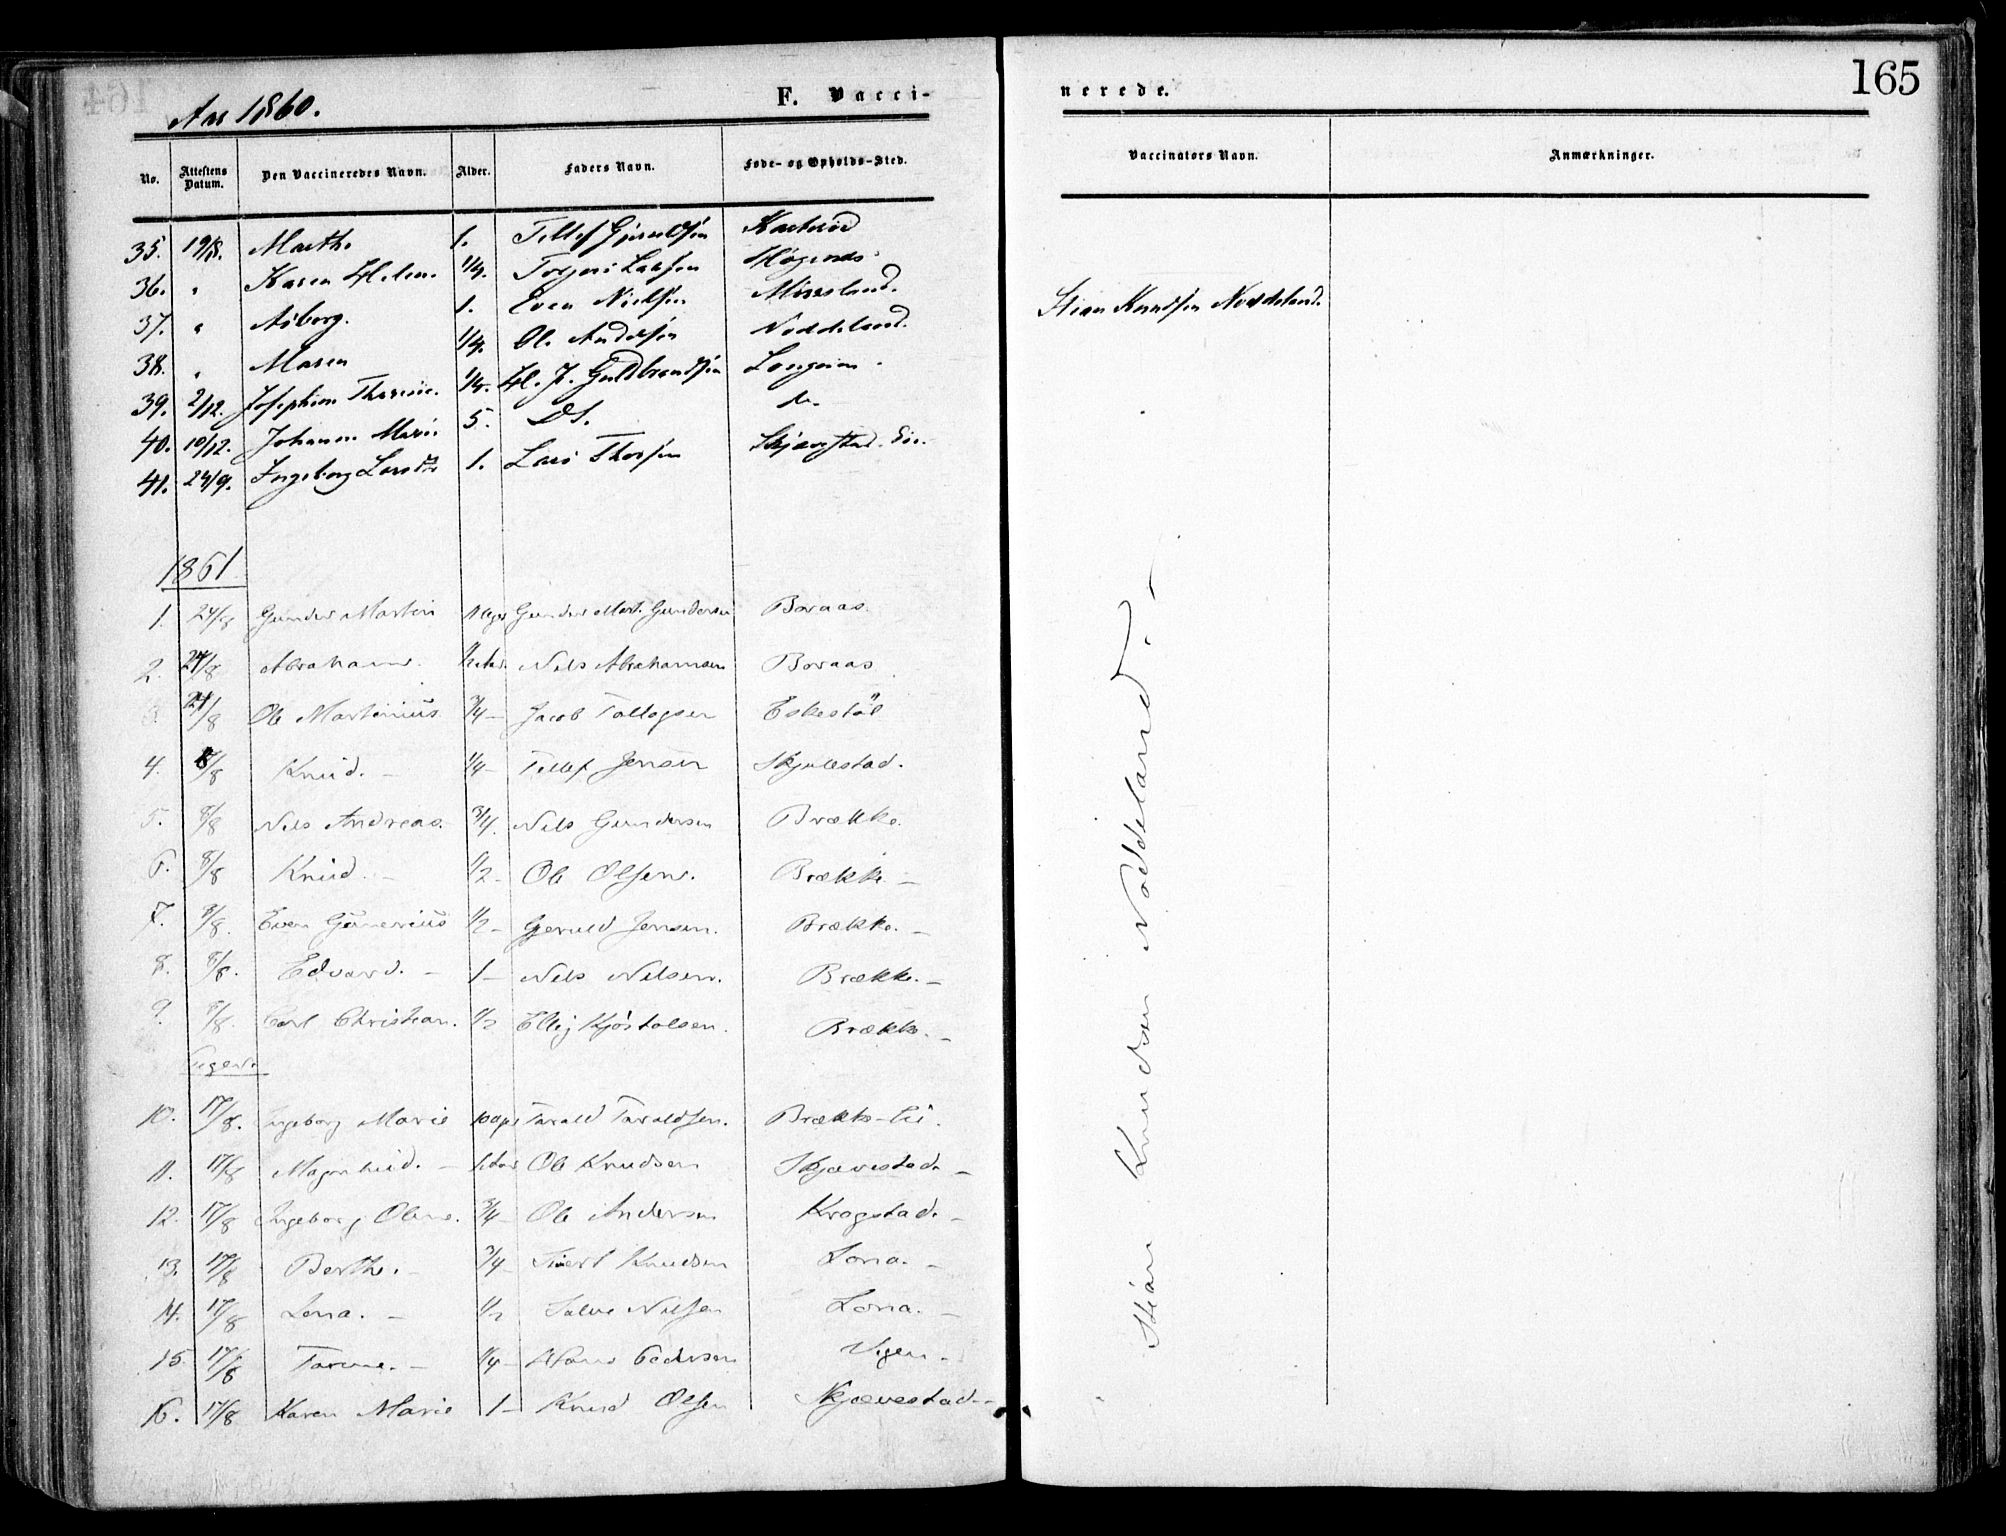 165
Aar 1860. F. Vacci-nerede.
No. Attestens Datum. Den Vaccineredes Navn. Alder. Faders Navn. Føde- og Opholds-Sted. Vaccinators Navn. Anmærkninger.
35. 19/8. Marthe 1. Tellef
36. " Karen Helene 1/4. Torjus
37. " Asborg. 1. Even Nielsen Stian Knudsen Noddeland.
38. " Maren 1/4. Ole Andersen Noddeland.
39. 2/12. Josephine 1/4. H. J. Guldbrandsen
40. 10/12. Johanne Marie 5. Ds.
41. 24/9. Ingeborg Larsdtr 1. Lars
1861
1. 24/8 Gunder Martin Gunder Mart. Gundersen Boraas.
2. 24/8 Abraham. Nils Abrahamsen Boraas
24/8 Ole Martinius 3/4 — Jacob Tallagsen Eskestöl
4. 8/8 Knud. — 1/4 — Tellef Jensen
5. 8/8 Nils Andreas. 3/4. Nils Gundersen Brække.
6. 8/8 Knud. — 1/2 - Ole Olsen. Brække —
7. 8/8. Even Gunerius 1/2 - Gjeruld Jensen. Brække. —
8. 8/8. Edvard. — 1 — Nils Nilsen. Brække. —
9. 8/8. Carl Christian. 1/2 Ellef Brække. —
10. 17/8. Ingeborg Marie Tarald Taraldsen. Brække-
11. 17/8 — Ole Knudsen Skjævestad. —
12. 17/8 Ingeborg Oline. 3/4 — Ole Andersen Kragstad. —
13. 17/8 Berthe. — 3/4 — Knudsen Lona. —
14. 17/8 Lena. — 1/2 Salve Nilsen Lona. —
15. 17/8 — 1/4 — Hans Pedersen
16. 17/8 Karen Marie 1 — Knud Olsen Skjævestad. —
Stian Knudsen Noddeland. —